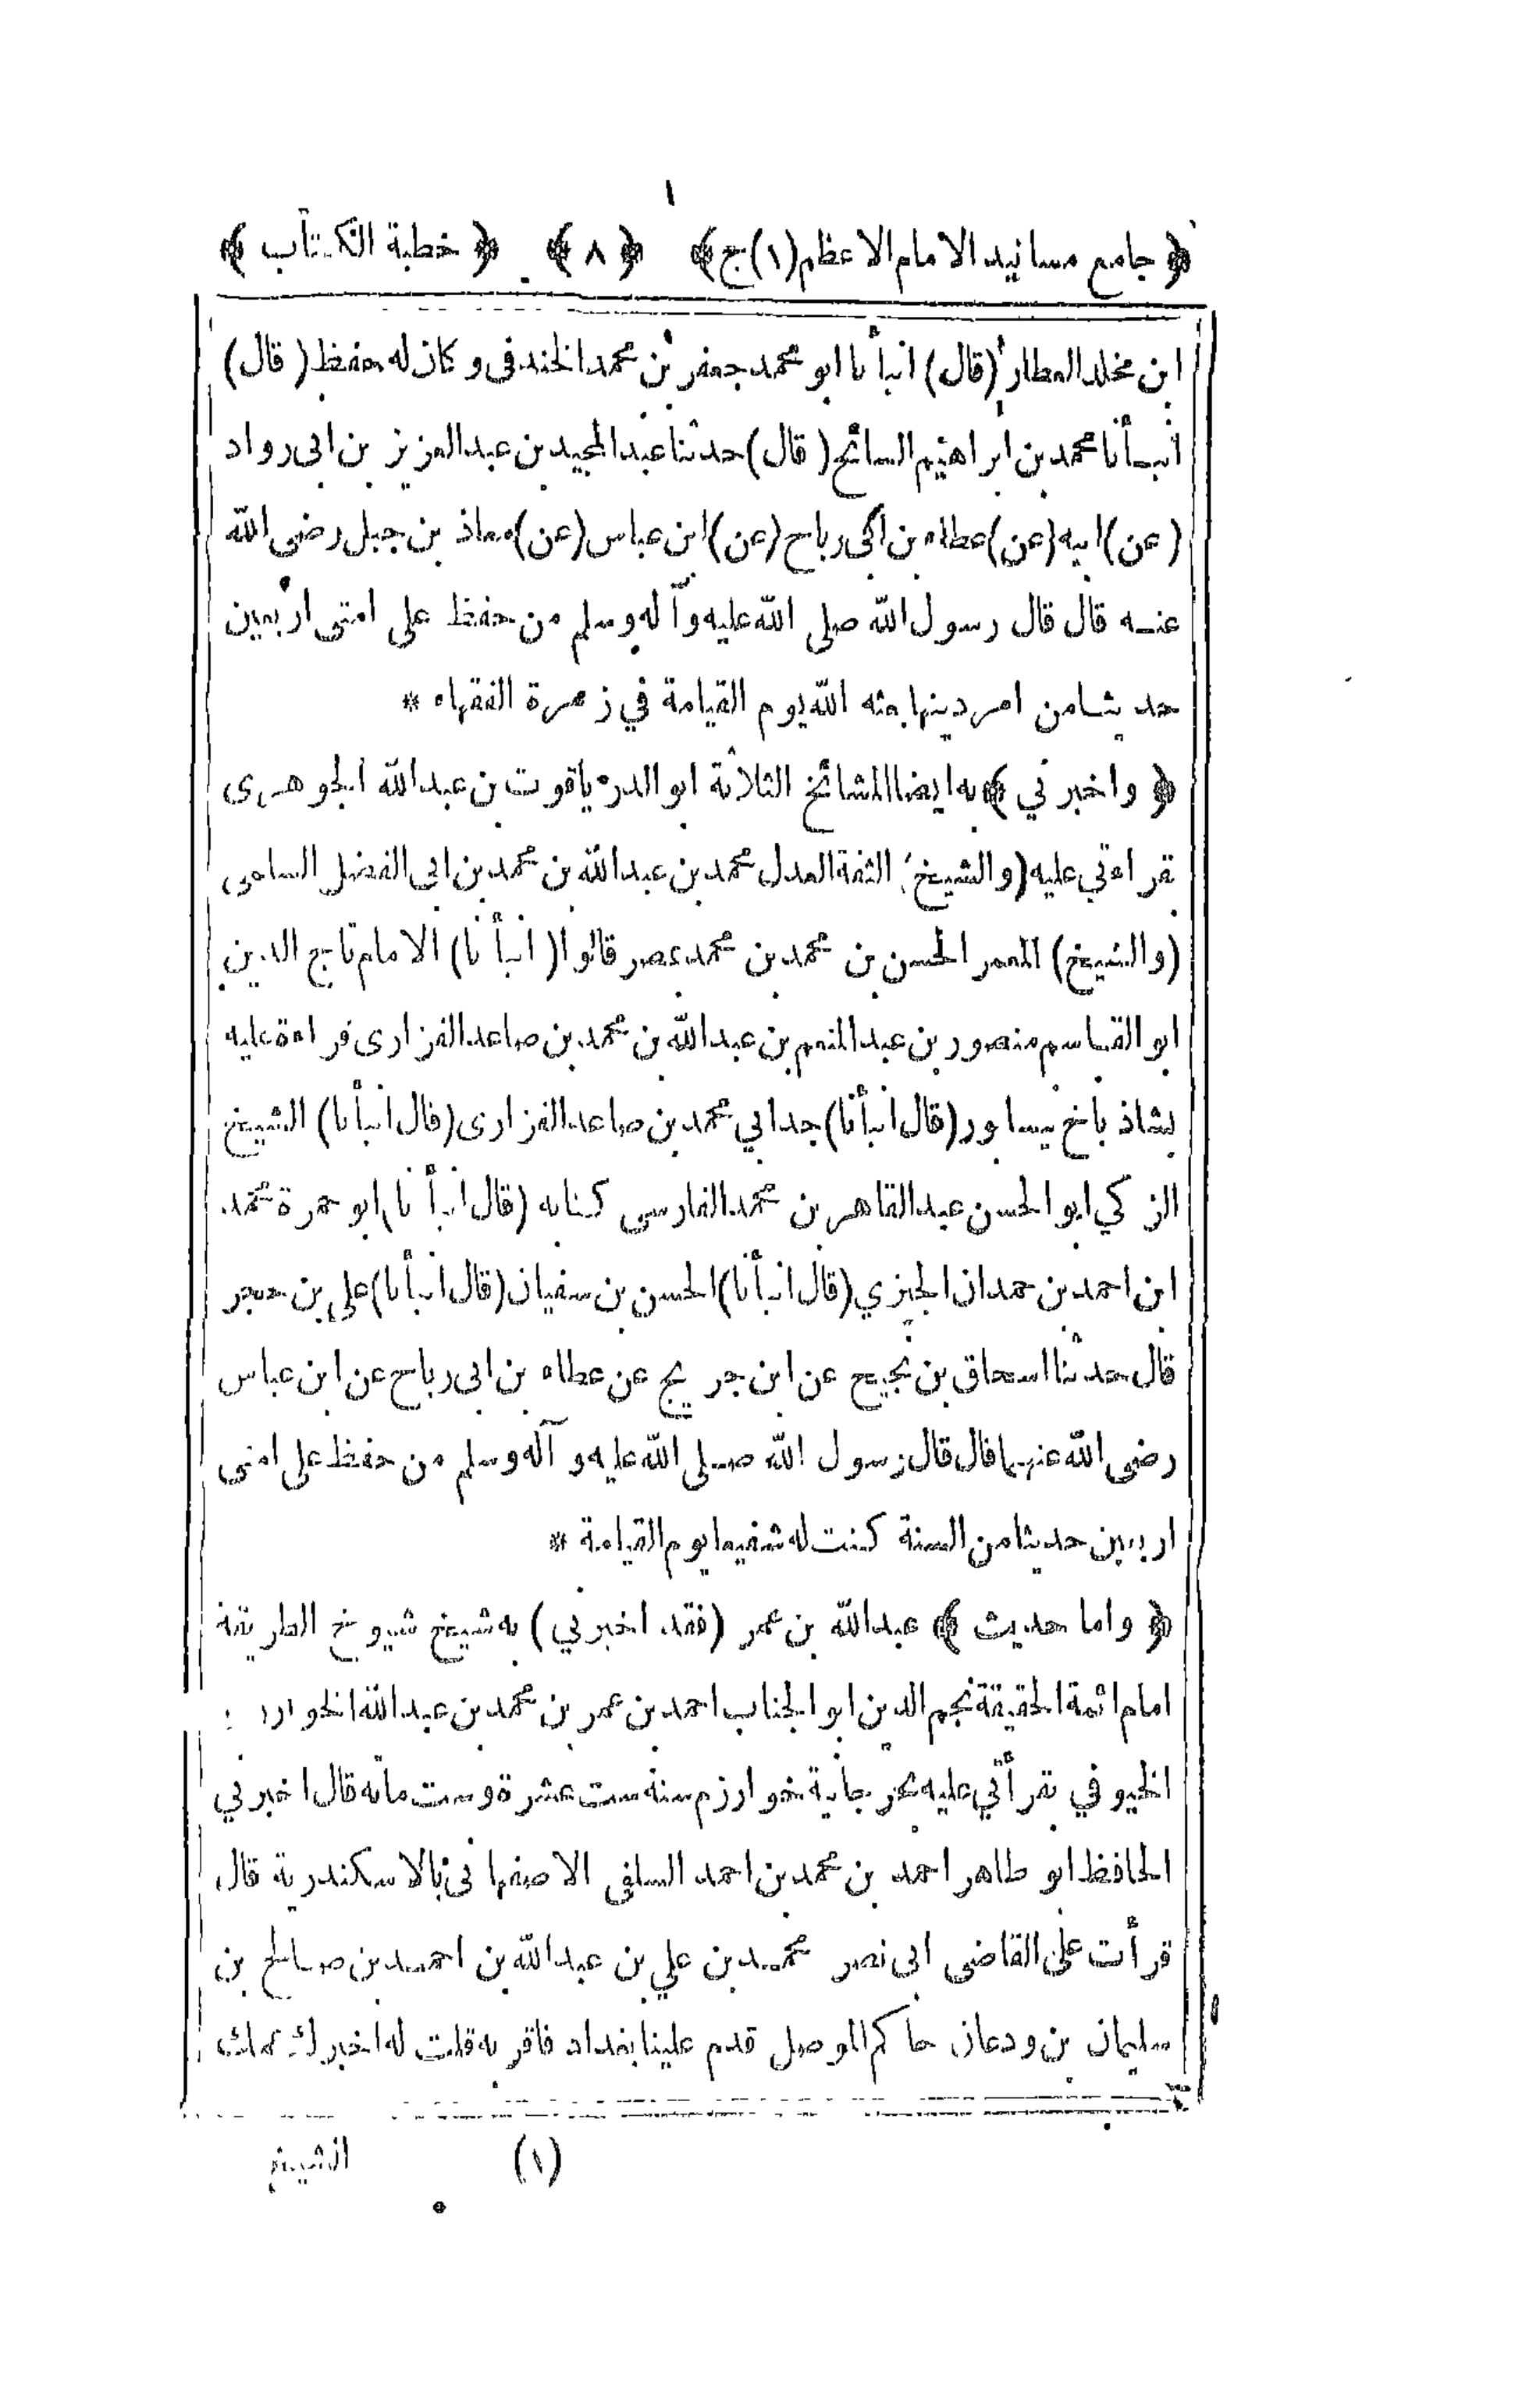 ﴿ جامع مسانيد الامام الاعظم (١) ج ﴾ ﴿ ٨ ﴾ ﴿ خطبة الكتاب ﴾
ابن مخلد العطار (قال) انبأنا ابو محمد جعفر بن محمد الخندفى وكان له حفظ (قال)
انبأنا محمد بن ابراهيم السائح (قال) حدثنا عبد المجيد بن عبد العزيز بن ابى رواد
(عن) ابيه (عن) عطاء بن ابى رباح (عن) ابن عباس (عن) معاذ بن جبل رضى الله
عنه قال قال رسول الله صلى الله عليه وآله وسلم من حفظ على امتى اربعين
حديثا من امر دينها بعثه الله يوم القيامة في زمرة الفقهاء *
﴿ واخبرني ﴾ به ايضا المشائخ الثلاثة ابو الدر ياقوت بن عبد الله الجوهرى
بقراءتي عليه (والشيخ) الثقة العدل محمد بن عبد الله بن محمد بن ابى الفضل السلمى
(والشيخ) المعمر الحسن بن محمد بن محمد بمصر قالوا (انبأنا) الامام تاج الدين
ابو القاسم منصور بن عبد المنعم بن عبد الله بن محمد بن صاعد الفزارى قراءة عليه
بشاذ ياخ نيسابور (قال انبأنا) جد ابي محمد بن صاعد الفزارى (قال انبأنا) الشيخ
الزكي ابو الحسن عبد القاهر بن محمد الفارسى كتابه (قال انبأنا) ابو حمرة محمد
ابن احمد بن حمدان الجيزي (قال انبأنا) الحسن بن سفيان (قال انبأنا) علي بن حجر
قال حدثنا اسحاق بن نجيح عن ابن جريج عن عطاء بن ابى رباح عن ابن عباس
رضى الله عنهما قال قال رسول الله صلى الله عليه وآله وسلم من حفظ على امتى
اربعين حديثا من السنة كنت له شفيعا يوم القيامة *
﴿ واما حديث ﴾ عبد الله بن عمر (فقد اخبرني) به شيخ شيوخ الطريقة
امام ائمة الحقيقة نجم الدين ابو الجناب احمد بن عمر بن محمد بن عبد الله
الخيوفي بقرأتي عليه بجرجانية خوارزم سنة ست عشرة وست مائه قال اخبرني
الحافظ ابو طاهر احمد بن محمد بن احمد السلفى الاصفهانى بالاسكندرية قال
قرأت على القاضى ابى نصر محمد بن علي بن عبد الله بن احمد بن صالح بن
سليمان بن ودعان حاكم الموصل قدم علينا بغداد فاقر به قلت له اخبرك عمك
(١) الشيخ